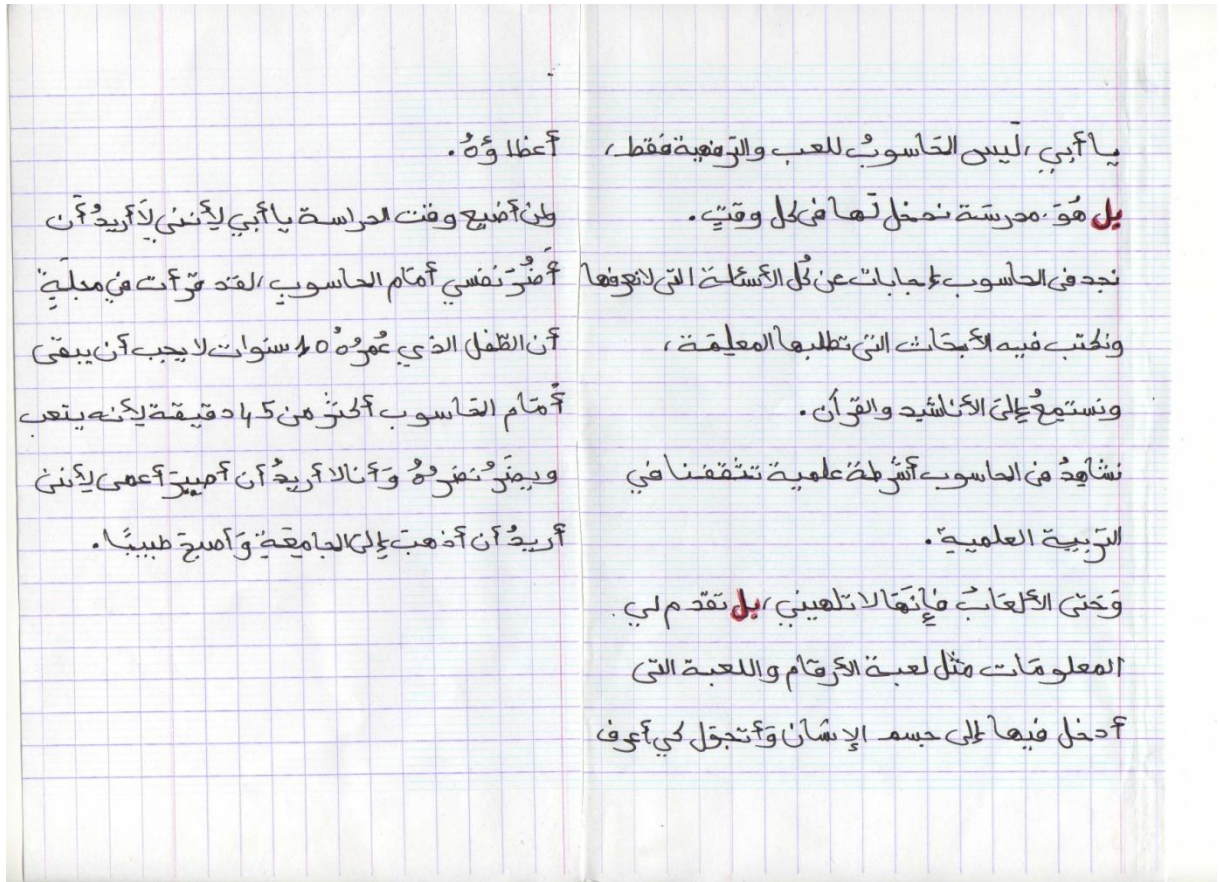 يا أبي، لَيس الحَاسوبُ للعب والتّرفهية فَقط،
بل هُوَ مدرسَة ندخل لَها في كل وقتٍ.
نجد في الحاسوب إجابات عن كُل الأسئلة التي لا نعرفها
ونكتب فيه الأبحَاث التي تطلبها المعلِمَة،
ونستمِعُ إلىَ الأناشيد والقرآن.
نشاهِدُ من الحاسوب أشرطة علمية تثقفنا في
التّربية العلمية.
وَحَتى الألعَابُ فإِنَهَا لا تلهيني، بل تقدّم لي
المعلومَات مثْل لعبة الأرقَام واللعبة التي
أدخل فيها إلى جسم الإنسَان وَأتجوّل كي أعرف
أعظاؤهُ.
ولن أضيع وقت الدراسة يا أبي لِأنني لَا أريدُ أَن
أَضُرّ نَفسي أمَام الحاسوبِ، لقد قرَأت في مجلَةٍ
أن الطّفل الذي عُمرُهُ 10 سنوات لا يجب أن يبقى
أمَام الحَاسوب أكثرْ من 45 دقيقة لِأنه يتعب
ويضَرُ نضرُهُ وَأنا لا أريدُ أن أصِيرَ أعمى لِأنني
أريدُ أن أذهبَ إلىَ الجامِعَةِ وَأصبحَ طبيبًا.